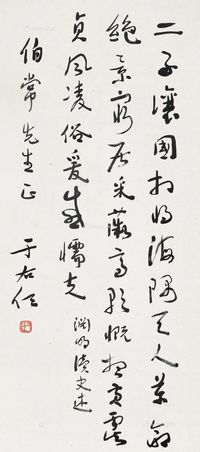 二子讓國相將海隅天人革命
絕景窮居采薇高歌慨想黃虞
貞風凌俗爰感懦夫 淵明讀史述
伯常先生正
于右任